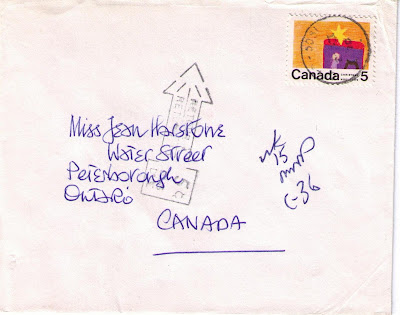 Canada 5
Miss Jean Harstone
Water Street
Peterborough
Ontario
CANADA
C-36